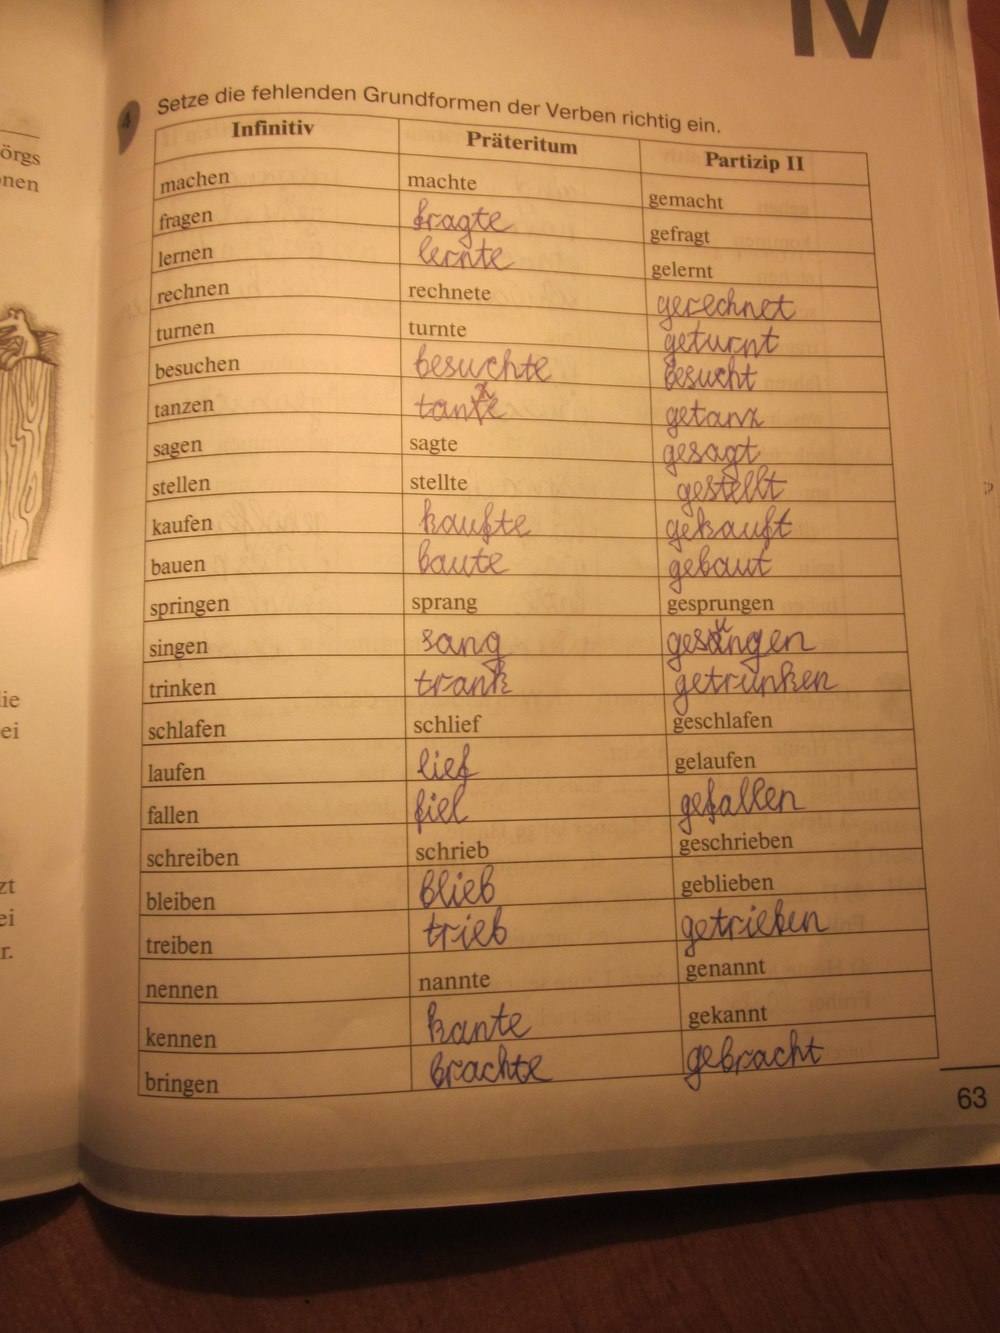 IV
4 Setze die fehlenden Grundformen der Verben richtig ein.
Infinitiv Präteritum Partizip II
machen machte gemacht
fragen fragte gefragt
lernen lernte gelernt
rechnen rechnete gerechnet
turnen turnte geturnt
besuchen besuchte besucht
tanzen tanzte getanz
sagen sagte gesagt
stellen stellte gestellt
kaufen kaufte gekauft
bauen baute gebaut
springen sprang gesprungen
singen sang gesungen
trinken trank getrunken
schlafen schlief geschlafen
laufen lief gelaufen
fallen fiel gefallen
schreiben schrieb geschrieben
bleiben blieb geblieben
treiben trieb getrieben
nennen nannte genannt
kennen kante gekannt
bringen brachte gebracht
63
örgs
nen
ie
ei
zt
ei
r.